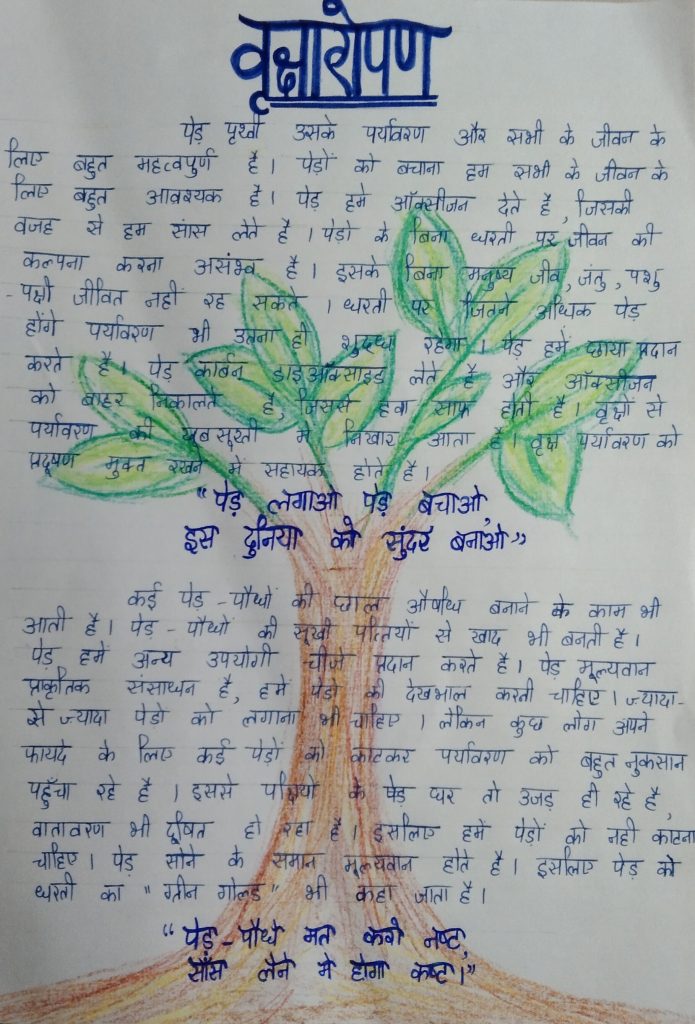 वृक्षारोपण
पेड़ पृथ्वी उसके पर्यावरण और सभी के जीवन के
लिए बहुत महत्वपुर्ण है। पेड़ों को बचाना हम सभी के जीवन के
लिए बहुत आवश्यक है। पेड़ हमे ऑक्सीजन देते है, जिसकी
वजह से हम सांस लेते है। पेडो के बिना धरती पर जीवन की
कल्पना करना असंभव है। इसके बिना मनुष्य जीव, जंतु, पशु
-पक्षी जीवित नहीं रह सकते। धरती पर जितने अधिक पेड़
होंगे पर्यावरण भी उतना ही शुद्ध रहेगा। पेड़ हमें छाया प्रदान
करते है। पेड़ कार्बन डाइऑक्साइड लेते है और ऑक्सीजन
को बाहर निकालते है, जिससे हवा साफ होती है। वृक्षों से
पर्यावरण की खुबसूरती में निखार आता है। वृक्ष पर्यावरण को
प्रदूषण मुक्त रखने में सहायक होते है।
"पेड़ लगाओ पेड़ बचाओ,
इस दुनिया को सुंदर बनाओ"
कई पेड़-पौधों की छाल औषधि बनाने के काम भी
आती है। पेड़-पौधों की सूखी पत्तियों से खाद भी बनती है।
पेड़ हमें अन्य उपयोगी चीजे प्रदान करते है। पेड़ मूल्यवान
प्राकृतिक संसाधन है, हमें पेडो की देखभाल करती चाहिए। ज्यादा-
से ज्यादा पेडो को लगाना भी चाहिए। लेकिन कुछ लोग अपने
फायदे के लिए कई पेड़ों को काटकर पर्यावरण को बहुत नुकसान
पहुँचा रहे है। इससे पक्षियो के पेड़ घर तो उजड़ ही रहे है,
वातावरण भी दूषित हो रहा है। इसलिए हमें पेड़ों को नही काटना
चाहिए। पेड़ सोने के समान मूल्यवान होते है। इसलिए पेड़ को
धरती का "ग्रीन गोल्ड" भी कहा जाता है।
"पेड़-पौधे मत करो नष्ट,
साँस लेने मे होगा कष्ट।"